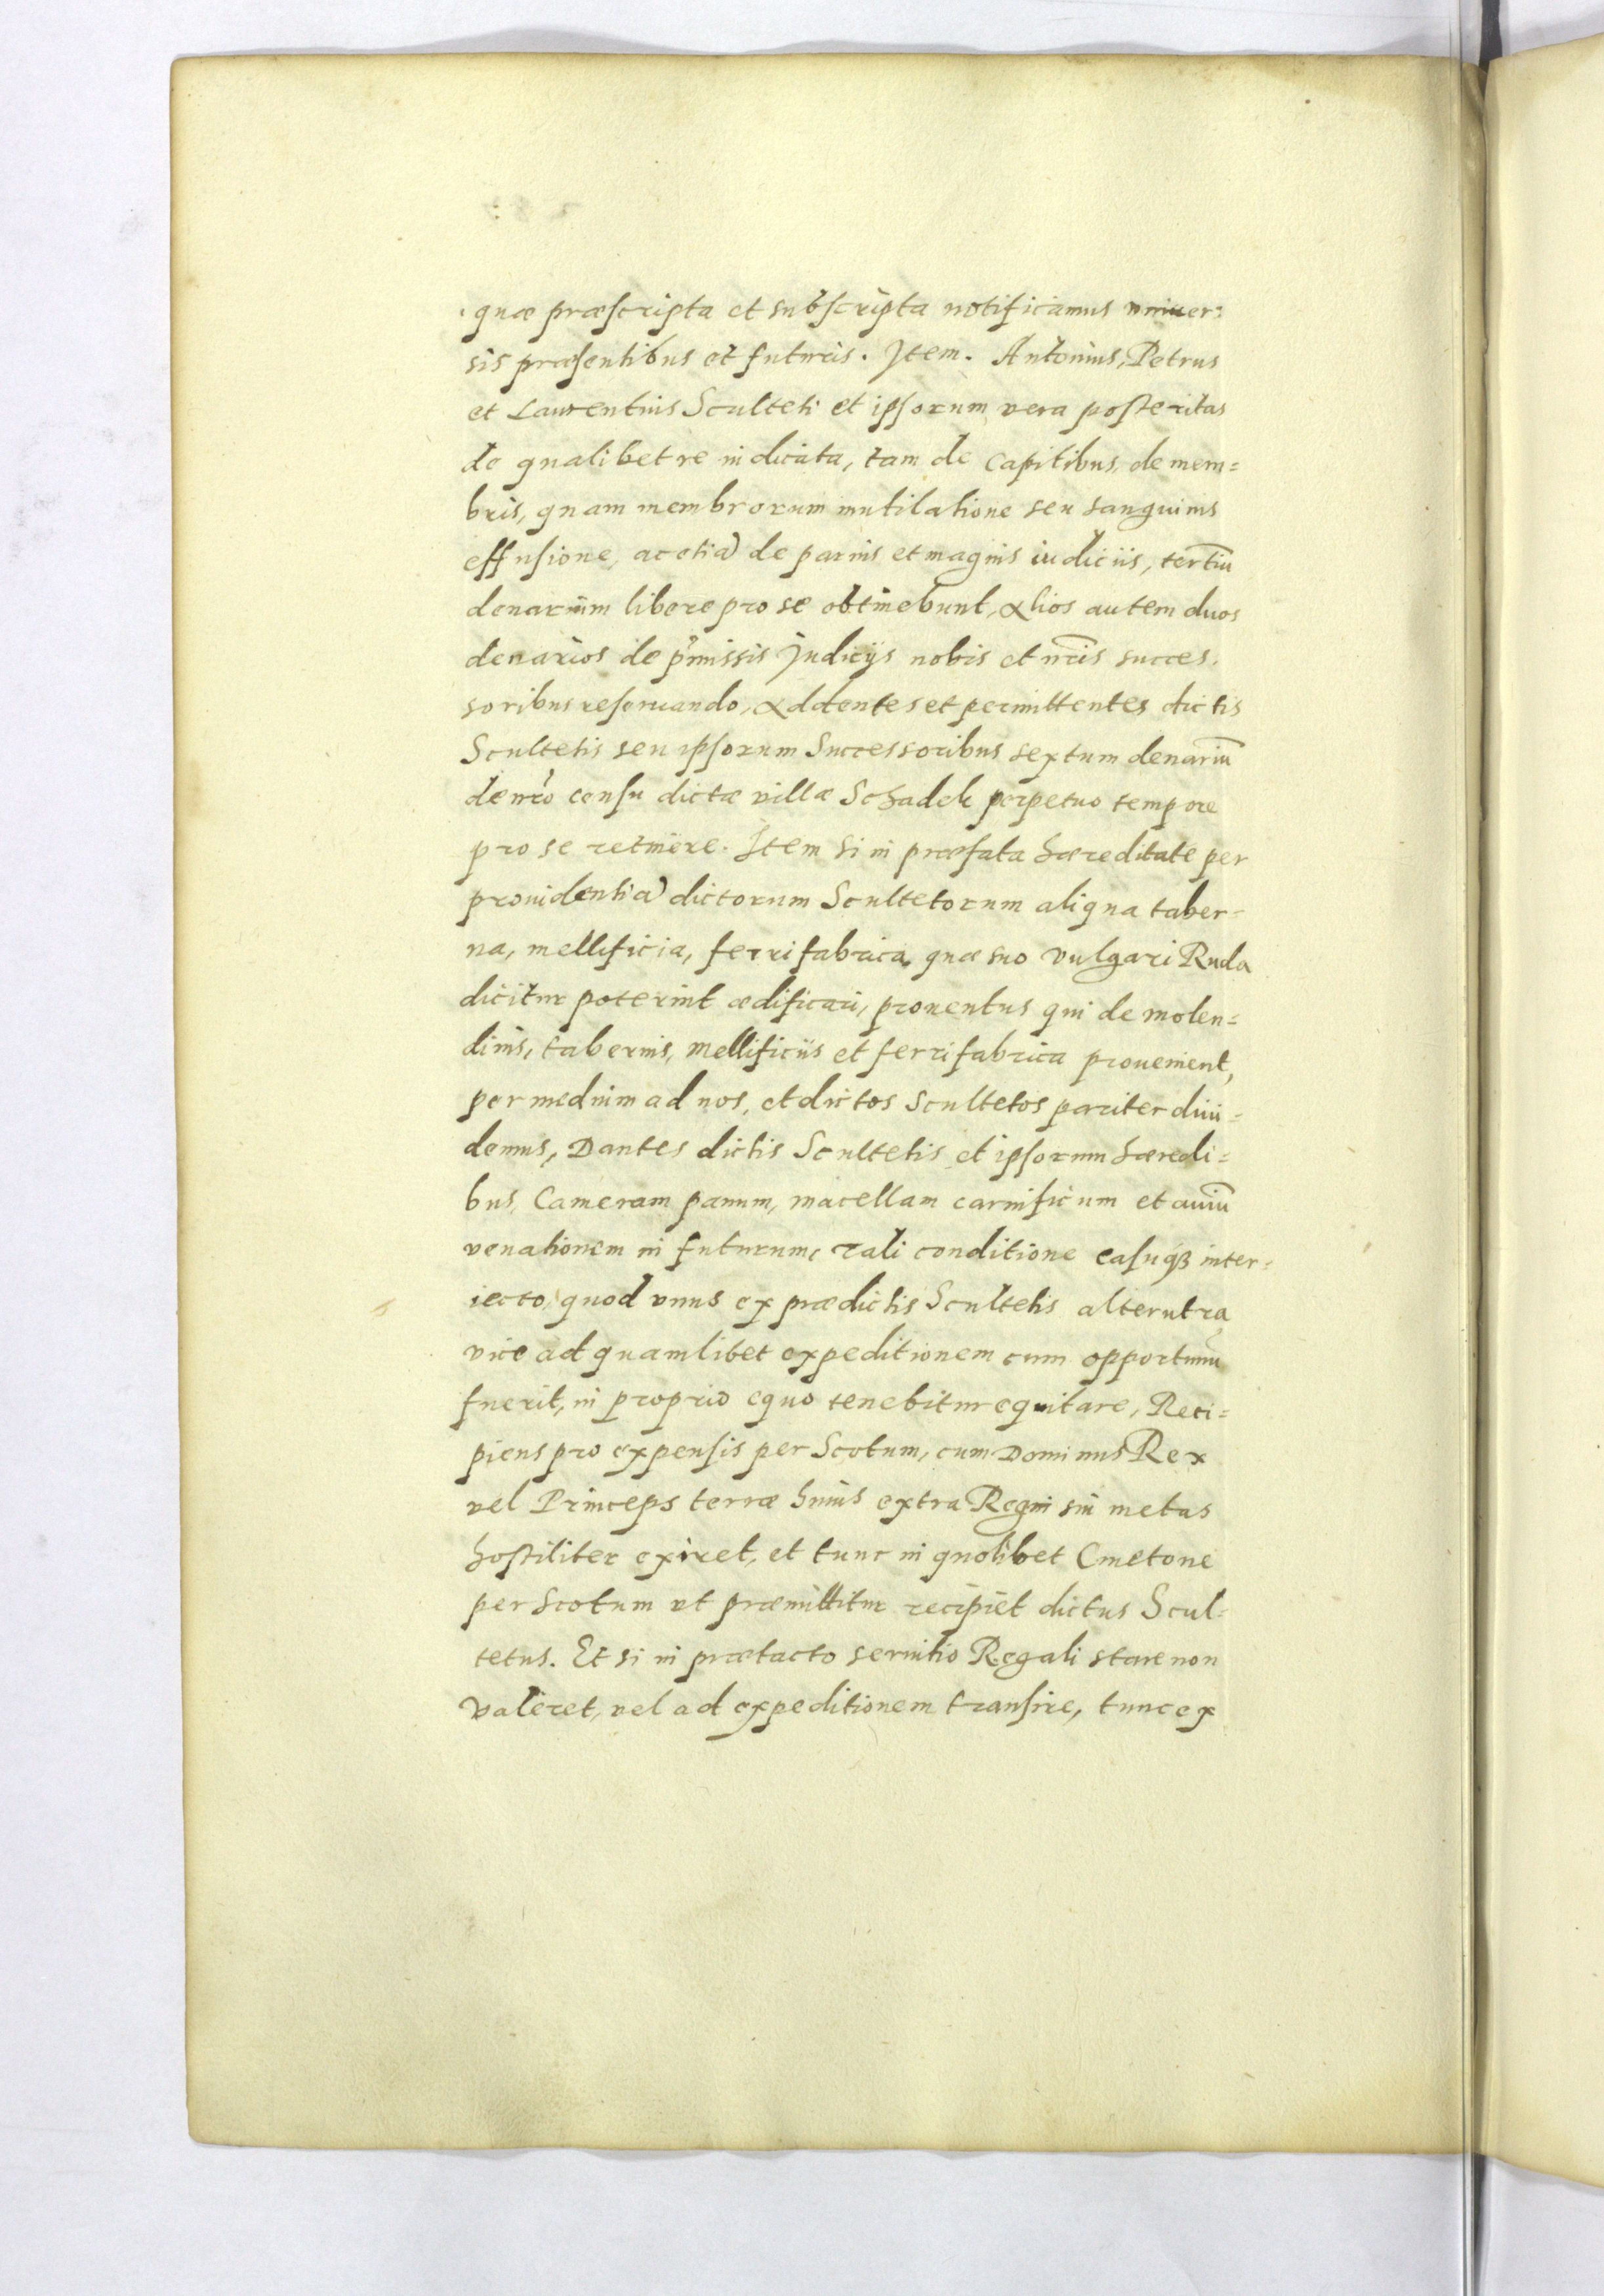 quæ præscripta et subscripta notificamus vniuer:
sis præsentibus et futuris. Item. Antonius, Petrus
et Laurentius Sculteti et ipsorum vera posteritas
de qualibet re iudicata, tam de capitibus, de mem=
bris, quam membrorum mutilatione seu sanguinis
effusione, ac etiã de paruis et magnis iudiciis, tertiũ
denarium libere pro se obtinebunt, Alios autem duos
denarios de p̃missis Judicijs nobis et nr̃is succes.
soribus reseruando, Addentes et permittentes dictis
Scultetis seu ipsorum Successoribus sextum denariũ
de nrõ censu dictæ villæ Schadek perpetuo tempore
pro se retinere. Item si in præfata hæreditate per
prouidentiã dictorum Scultetorum aliqua taber=
na, mellificia, ferrifabrica, quæ suo vulgari Ruda
dicitur poterint ædificari, prouentus qui de molen=
dinis, tabernis, mellificiis et ferrifabrica prouenient,
per medium ad nos, et dictos Scultetos pariter diui=
demus, Dantes dictis Scultetis et ipsorum hæredi=
bus, Cameram panum, macellam carnificum et auiũ
venationem in futurum, tali conditione casuq̃ inter=
iecto, quod vnus ex prædictis Scultetis alterutra
vice ad quamlibet expeditionem cum opportunũ
fuerit, in proprio equo tenebitur equitare, Reci=
piens pro expensis per Scotum, cum Dominus Rex
vel Princeps terræ huius extra Regni sui metas
hostiliter exiret, et tunc in quolibet Cmetone
per Scotum vt præmittitur recipiet dictus Scul=
tetus. Et si in prætacto seruitio Regali stare non
valeret, vel ad expeditionem transire, tunc ex